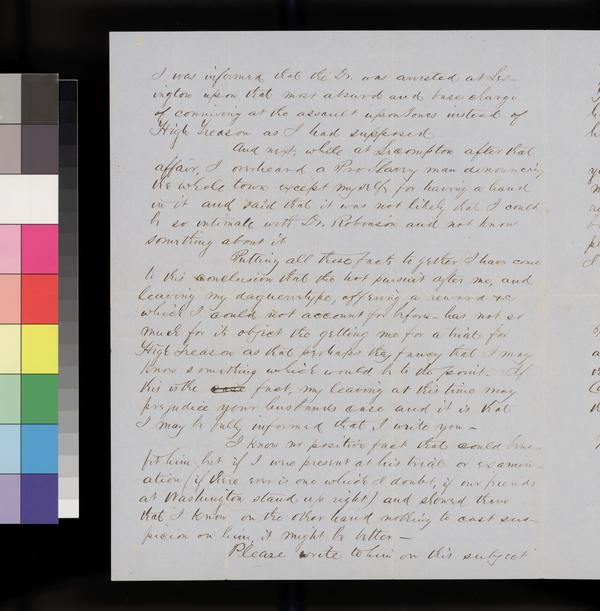 I was informed that the Dr. was arrested at Lex-
ington upon that most absurd and base charge
of conniving at the assault upon Jones instead of
High Treason as I had supposed
And next, while at Lecompton after that
affair, I overheard a Pro Slavery man denouncing
the whole town except myself, for having a hand
in it and said that it was not likely that I could
be so intimate with Dr. Robinson and not know
something about it
Putting all these facts together I have come
to this conclusion that the hot pursuit after me, and
leaving my daguerrotype, offering a reward &c
which I could not account for before - has not so
much for its object the getting me for a trial for
High Treason as that perhaps they fancy that I may
know something which would be to the point. If
this is the fact, my leaving at this time may
prejudice your husbands case and it is that
I may be fully informed that I write you -
I know no positive fact that could bene-
fit him, but if I were present at his trial or examin-
ation (if there ever is one which I doubt, if our friends
at Washington stand up right) and showed them
that I know on the other hand nothing to cast sus-
picion on him, it might be better -
Please write to him on this subject